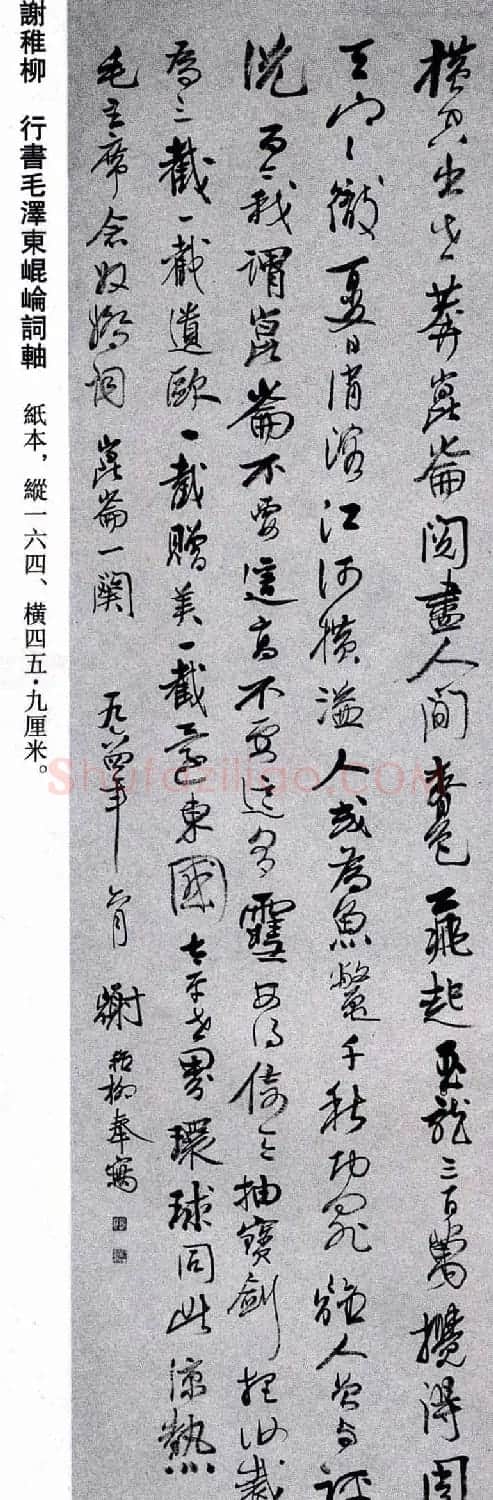 橫空出世莽崑崙閱盡人間春色飛起玉龍三百萬攪得周
天寒徹夏日消溶江河橫溢人或為魚鱉千秋功罪誰人曾與評
說而今我謂崑崙不要這高不要這多雪安得倚天抽寶劍把汝裁
為三截一截遺歐一截贈美一截還東國太平世界環球同此涼熱
毛主席念奴嬌詞 崑崙一闋 年 月 謝稚柳奉寫
謝稚柳 行書毛澤東崐崘詞軸 紙本，縱一六四、橫四五·九厘米。